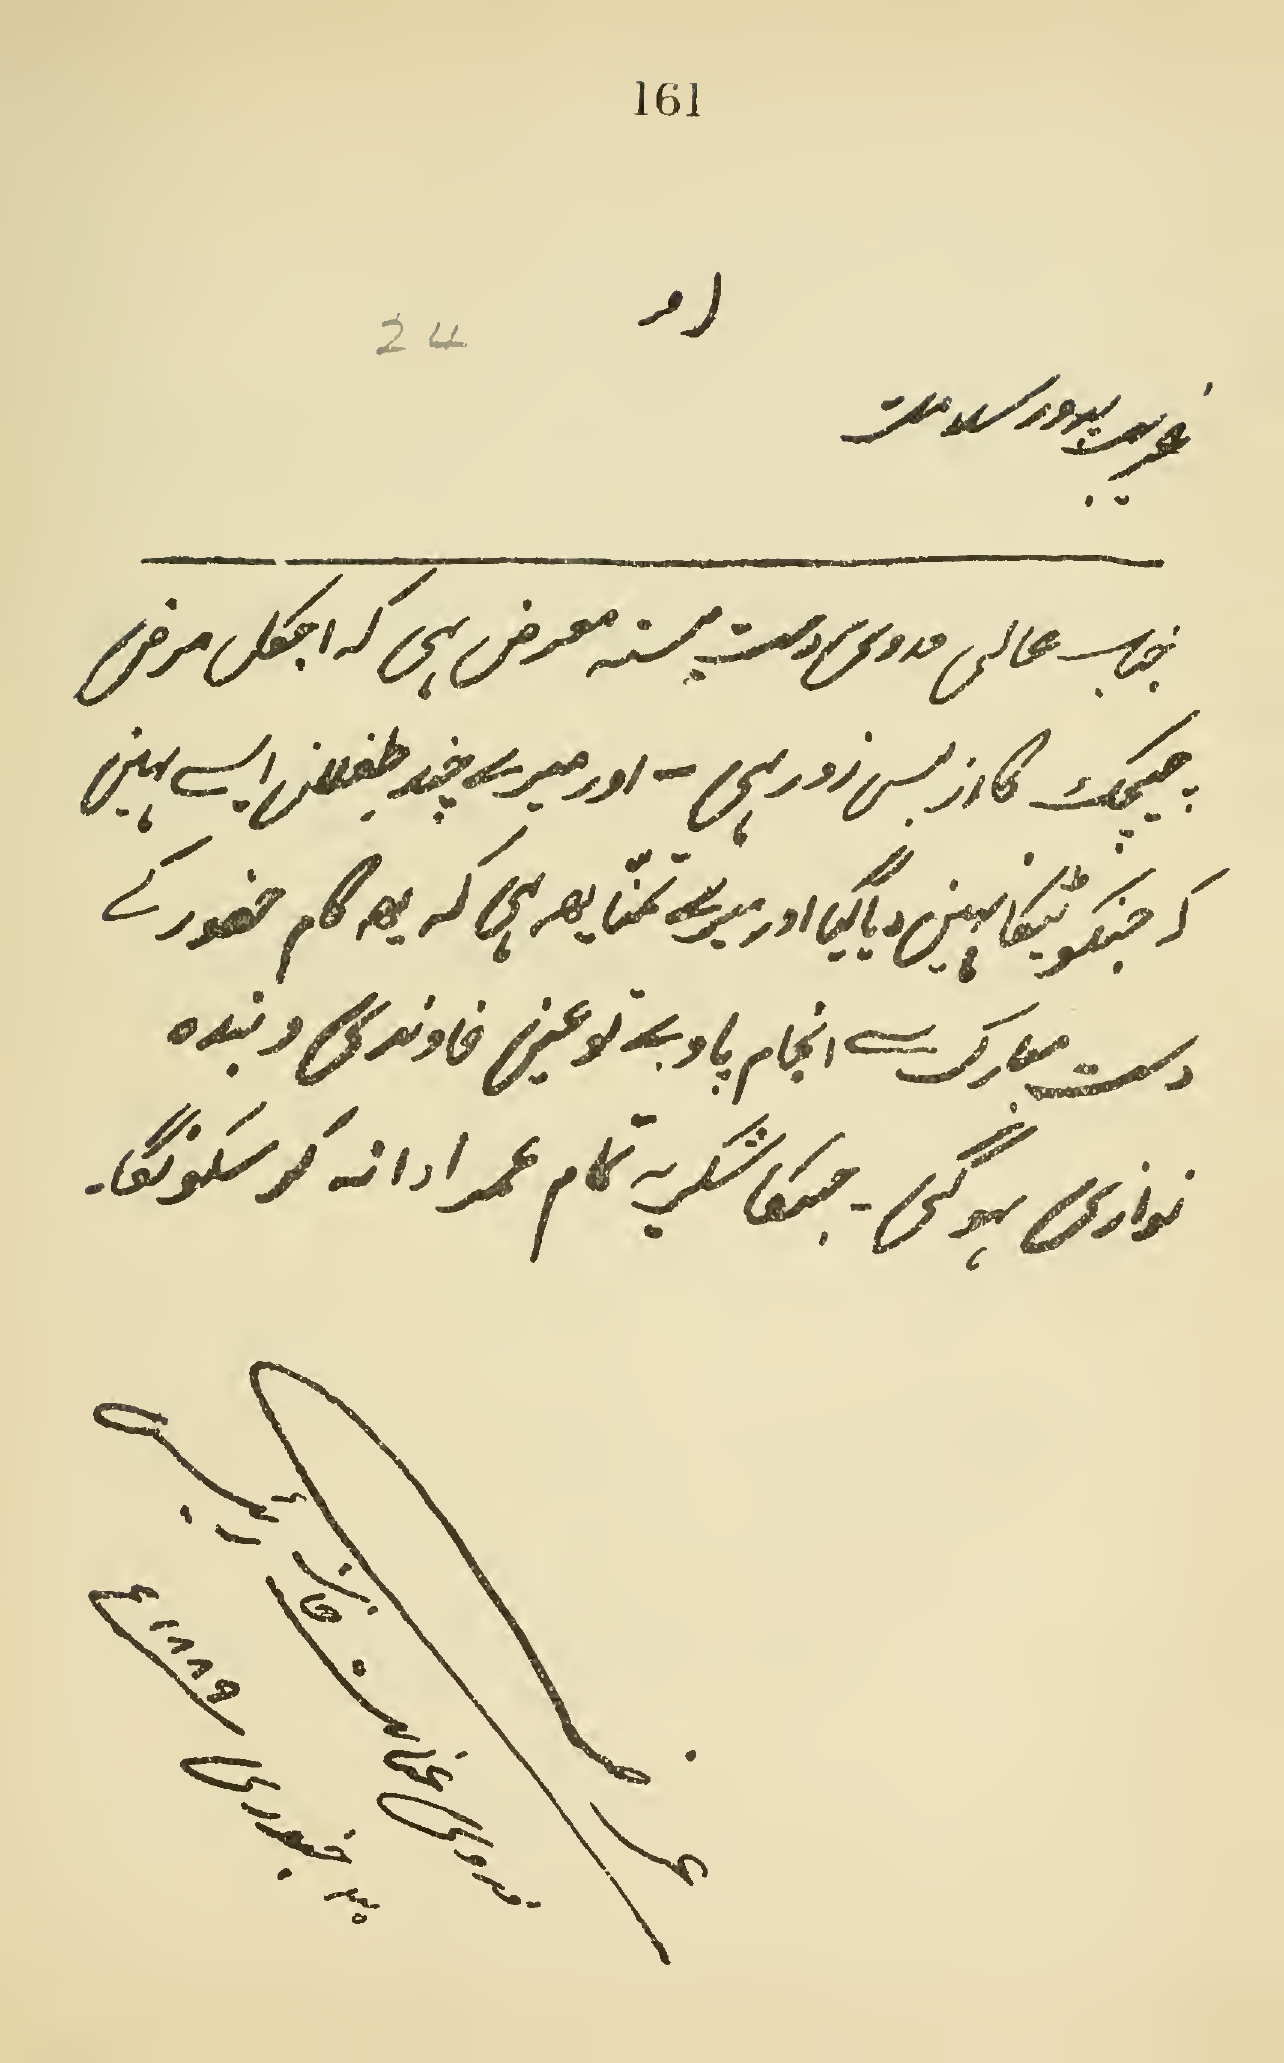 161
24
غریب پرور سلامت
جناب عالی فدوی دست بستہ معرض ہی کہ اجکل مرض
چیچک کا از بس زور ہی - اور میرے چند طفلان ایسے ہین
کہ جنکو ٹیکا نہین دیا گیا اور میرے تمنّا یھہ ہی کہ یہہ کام حضور کے
دست مبارک سے انجام پاوے تو عین خاوندی و بندہ
نوازی ہوگی - جسکا شکریہ تمام عمر ادا نہ کر سکونگا -
عرض
فدوی
رئیس
جنوری ۱۸۸۹ ع